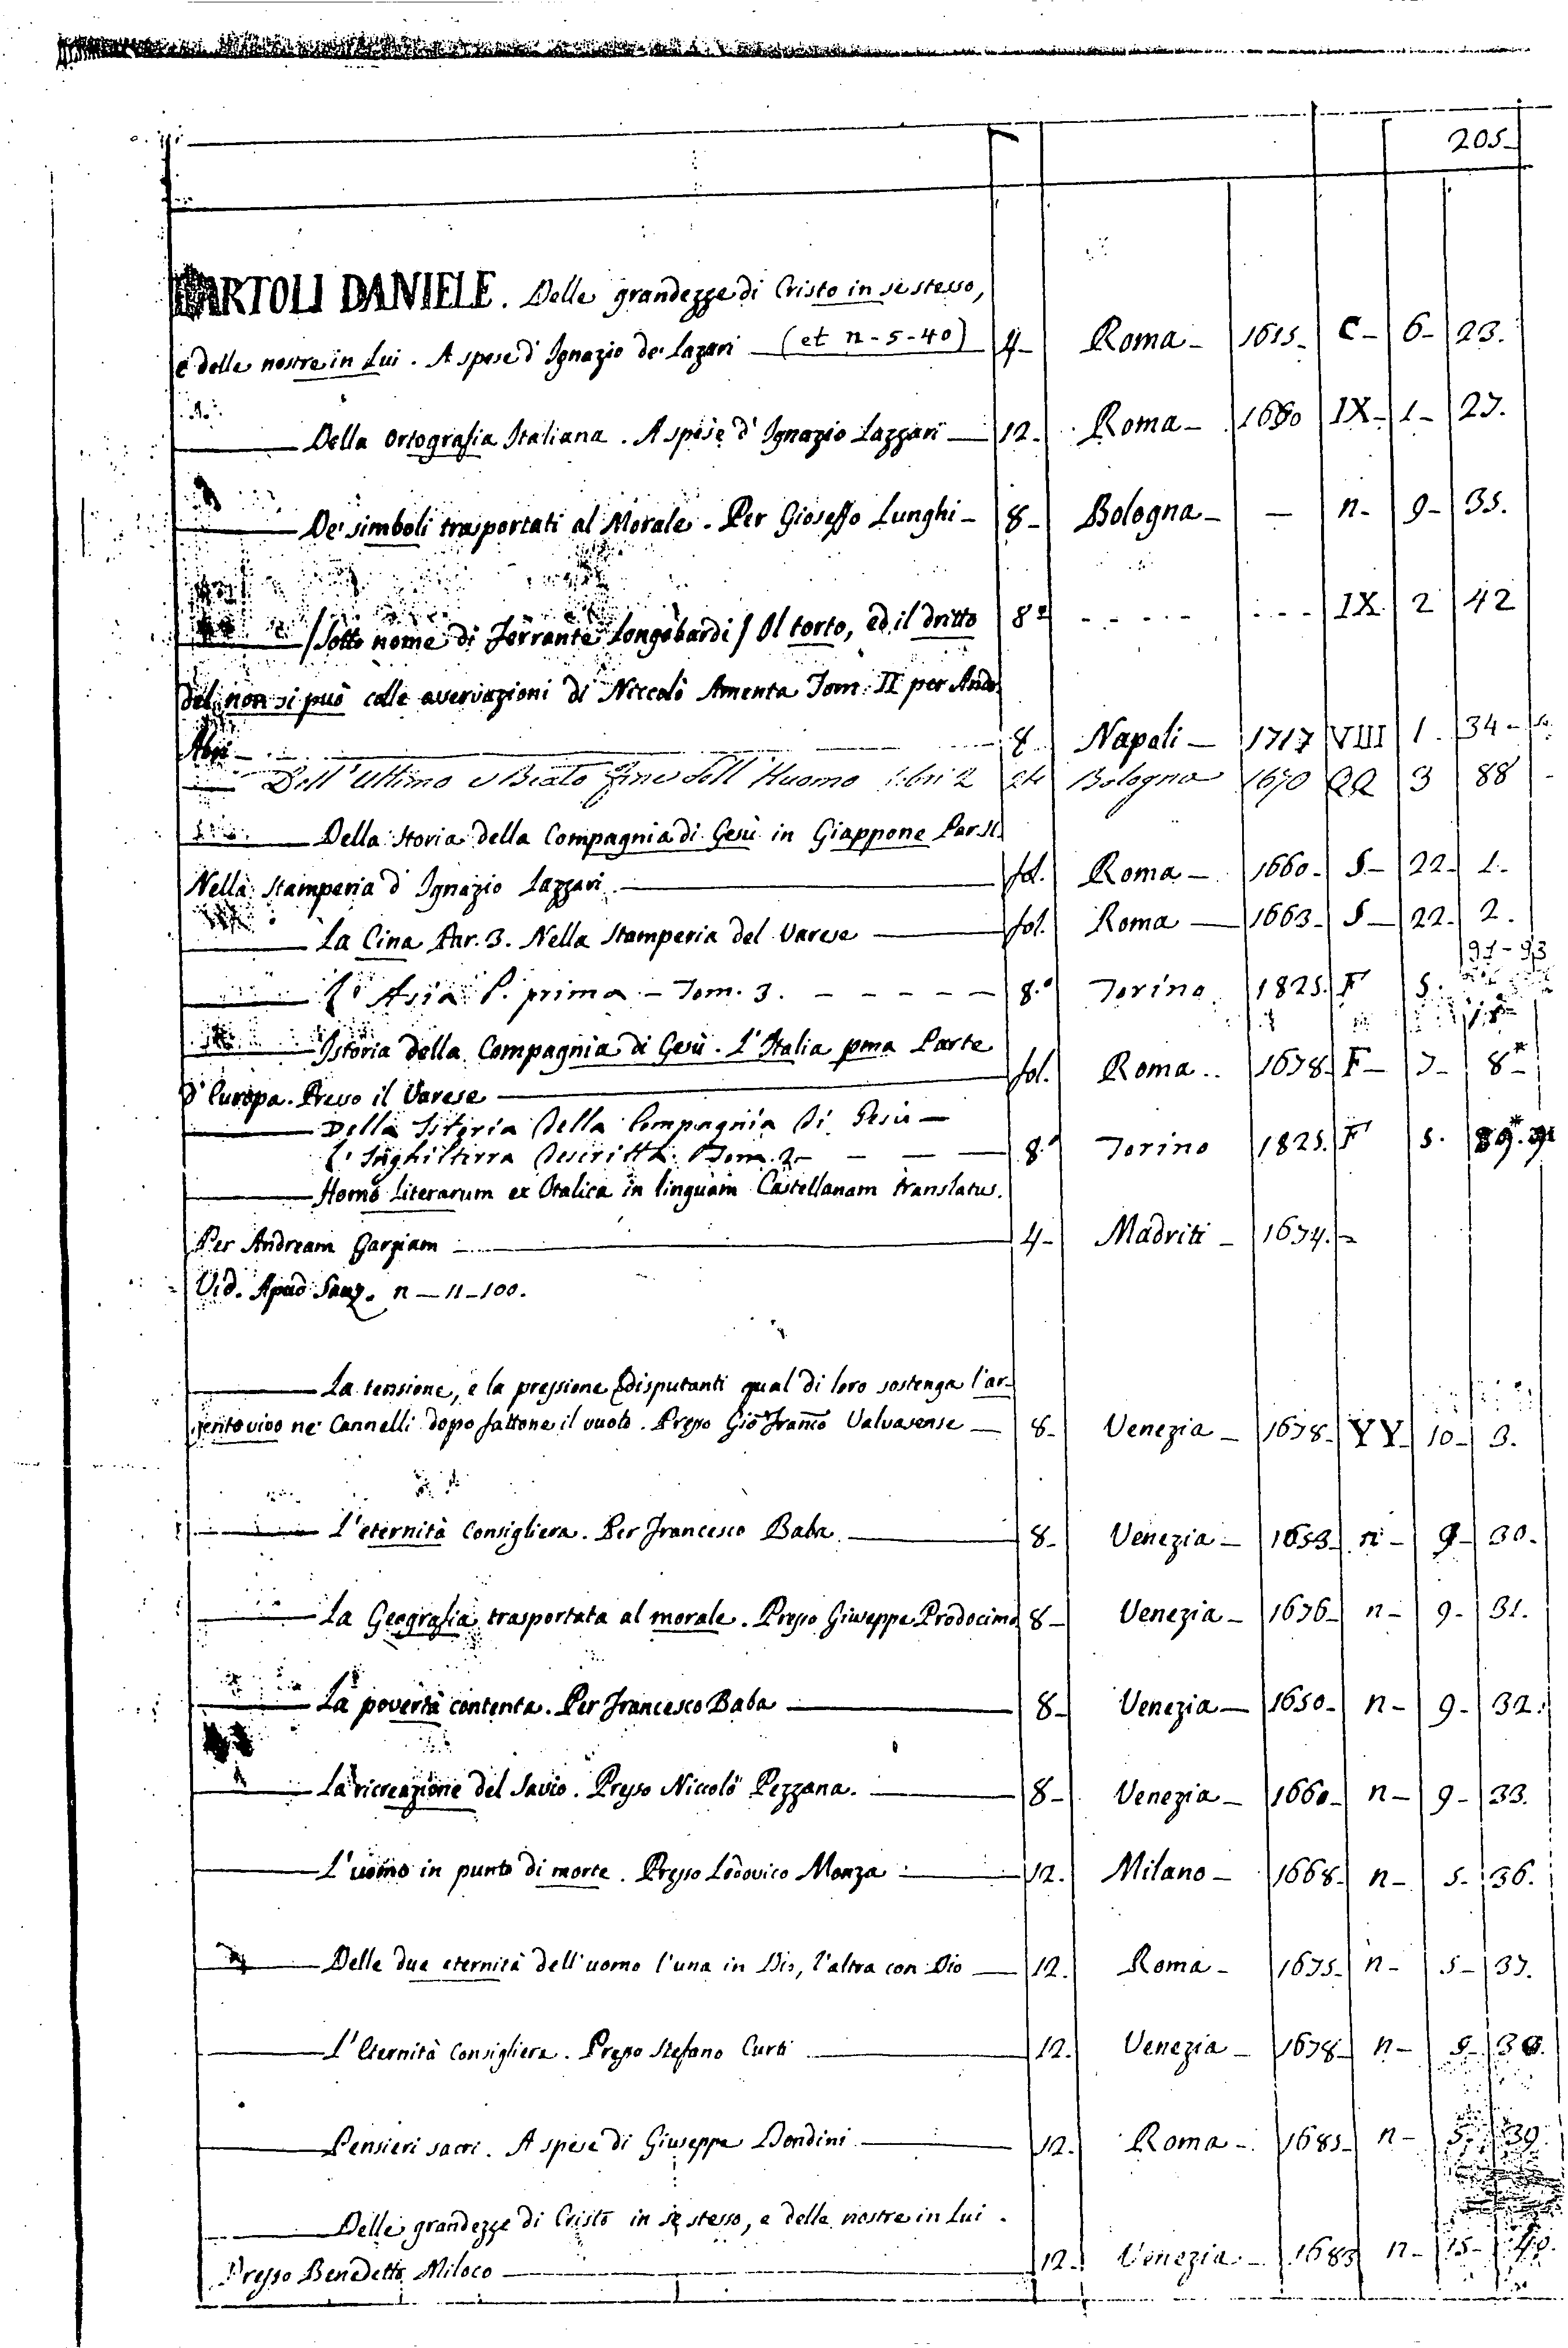 205
BARTOLI DANIELE. Delle grandezze di Cristo in se stesso,
e delle nostre in Lui. A spese d' Ignazio de' Lazari (et n-5-40) 4- Roma- 1615- C- 6- 23.
Della Ortografia Italiana. A spese d' Ignazio Lazzari 12- Roma- 1660 IX- 1- 27.
De' simboli trasportati al Morale. Per Gioseffo Lunghi- 8- Bologna- — n- 9- 35.
/Sotto nome di Ferrante Longobardi/ Il torto, ed il dritto 8° - - - - - - - - IX. 2 42
del non si può colle osservazioni di Niccolò Amenta Tom. II per
8 Napoli- 1717 VIII 1. 34-
Dell' Ultimo e Beato fine dell' Huomo libri 2 Bologna 1670 QQ 3 88
Della storia della Compagnia di Gesù in Giappone Par. II.
Nella Stamperia d' Ignazio Lazzari. fol. Roma- 1660- S- 22- 1.
La Cina Par. 3. Nella Stamperia del Varese fol. Roma 1663- S- 22. 2.
91-93
L' Asia P. prima - Tom. 3. - - - - - 8.° Torino 1825. F 5.
Istoria della Compagnia di Gesù. L'Italia pma Parte
d' Europa. Presso il Varese fol. Roma.. 1678- F- 7- 8*-
Della Istoria della Compagnia di Gesù -
L' Inghilterra descritta. Tom. 2- - - - 8.° Torino 1825. F 5.
Homo Literarum ex Italica in linguam Castellanam translatus.
Per Andream Garziam 4- Madriti- 1674.-
Vid. Apud Sanz. n-11-100.
La tensione, e la pressione disputanti qual di loro sostenga l'ar-
gento vivo ne' Cannelli dopo fattone il vuoto. Presso Gio Franco Valvasense - 8- Venezia- 1678- YY- 10- 3.
L'eternità Consigliera. Per Francesco Baba 8- Venezia- 1653- n- 9- 30.
La Geografia trasportata al morale. Presso Giuseppe Prodocimo 8- Venezia- 1676- n- 9- 31.
La povertà contenta. Per Francesco Baba 8- Venezia- 1650- n- 9- 32.
La ricreazione del Savio. Presso Niccolò Pezzana. 8- Venezia- 1660- n- 9- 33.
L'uomo in punto di morte. Presso Lodovico Monza 12. Milano- 1668- n- 5- 36.
Delle due eternità dell' uomo l'una in Dio, l'altra con Dio 12. Roma- 1675- n- 5- 37.
L'Eternità Consigliera. Presso Stefano Curti 12. Venezia- 1678- n-
Pensieri sacri. A spese di Giuseppe Dondini 12. Roma- 1685- n- 5. 39.
Delle grandezze di Cristo in se stesso, e delle nostre in Lui.
Presso Benedetto Miloco 12. Venezia- 1683 n- 15- 40.